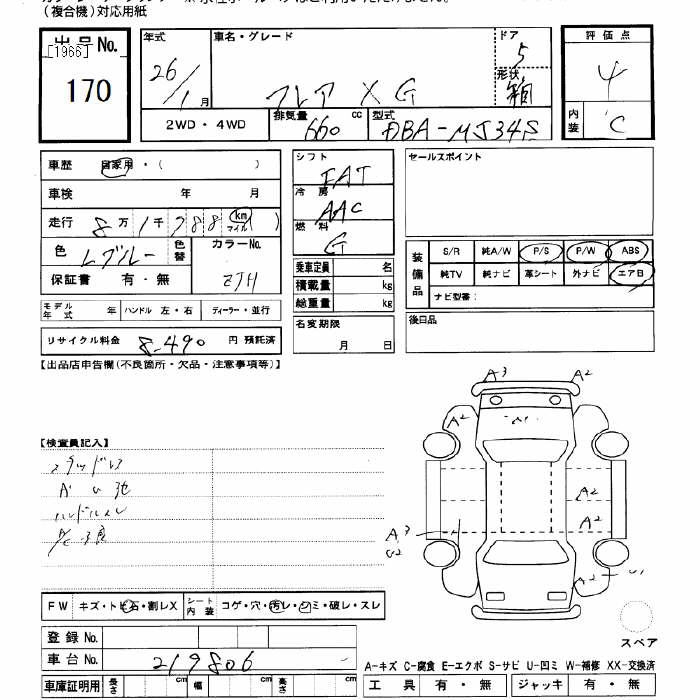 (複合機)対応用紙
出品No.
[1966]
170
年式
26/1月
車名・グレード
フレア XG
ドア
5
形状
箱
評価点
4
内装
C
2WD・4WD
排気量
660 cc
型式
DBA-MJ34S
車歴 自家用・( )
車検 年 月
走行 8万1千788 km マイル( )
色 Lブルー
色替
カラーNo.
ZJH
保証書 有・無
シフト
FAT
冷房
AAC
燃料
G
乗車定員 名
積載量 kg
総重量 kg
名変期限
月 日
セールスポイント
装備品
S/R 純A/W P/S P/W ABS
純TV 純ナビ 革シート 外ナビ エアB
ナビ型番:
後日品
モデル年式 年 ハンドル 左・右 ディーラー・並行
リサイクル料金 8,490 円 預託済
【出品店申告欄(不良箇所・欠品・注意事項等)】
【検査員記入】
スタッドレス
ハンドルスレ
A3
A2
A2
A1
A2
A2
A2
A3
U2
A2
U1
FW キズ・トビ石・割レX
シート内装 コゲ・穴・汚レ・シミ・破レ・スレ
登録No.
車台No. 219806
車庫証明用 長さ cm 幅 cm 高さ cm
スペア
A-キズ C-腐食 E-エクボ S-サビ U-凹ミ W-補修 XX-交換済
工具 有・無 ジャッキ 有・無